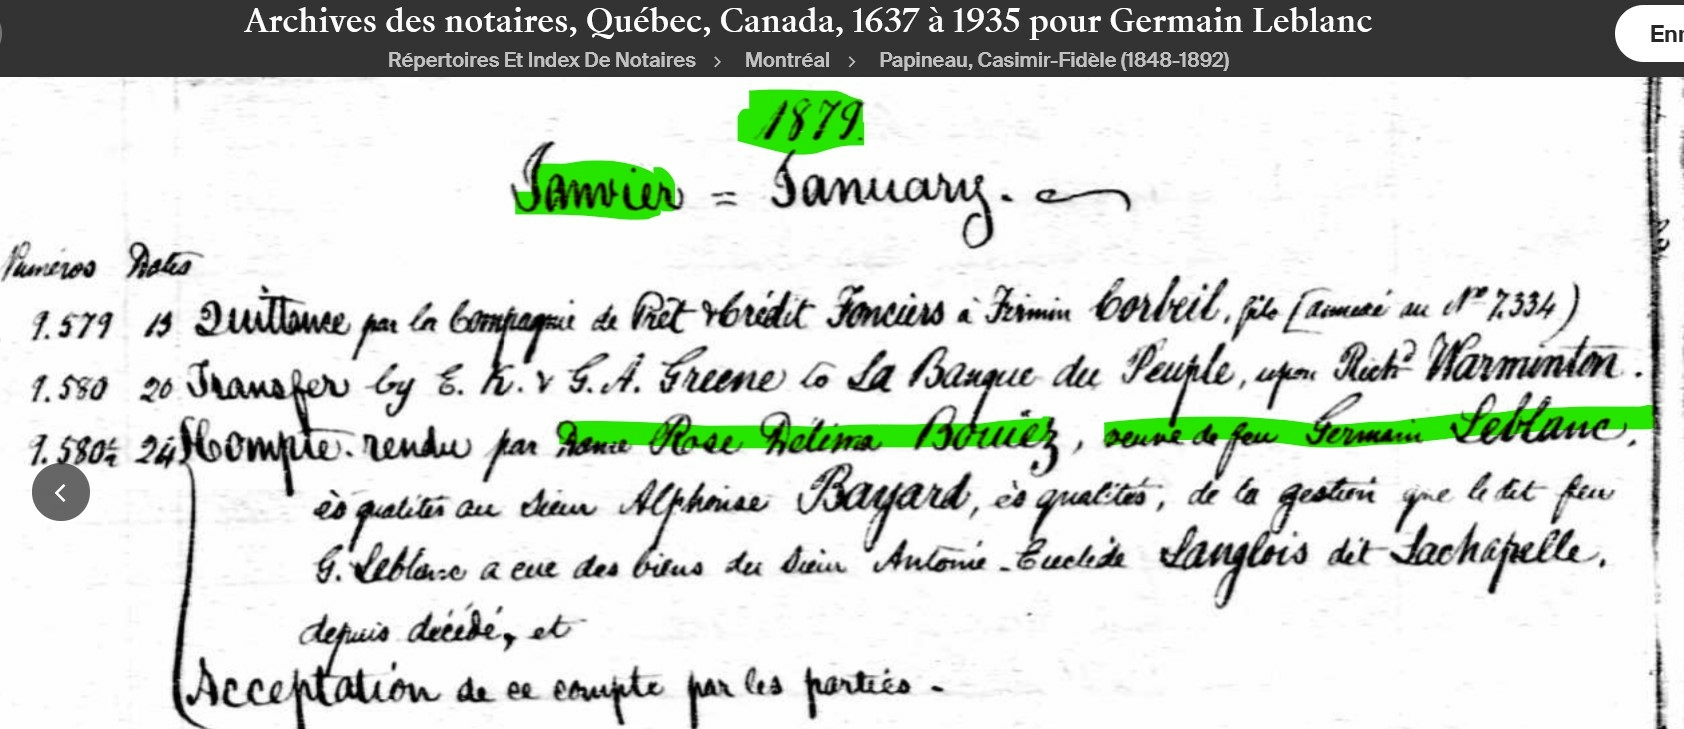 Archives des notaires, Québec, Canada, 1637 à 1935 pour Germain Leblanc
Répertoires Et Index De Notaires > Montréal > Papineau, Casimir-Fidèle (1848-1892)
Enr
1879.
Janvier = January.
Numéros Dates
9.579 13 Quittance par la Compagnie de Prêt & Crédit Fonciers à Firmin Corbeil, fils (annexé au No 7.334)
9.580 20 Transfer by E. K. & G. A. Greene to La Banque du Peuple, upon Richd Warminton.
9.580½ 24 Compte-rendu par Dame Rose Délima Bouiez, veuve de feu Germain Leblanc,
ès qualités au Sieur Alphonse Bayard, ès qualités, de la gestion que le dit feu
G. Leblanc a eue des biens du Sieur Antoine-Euclide Langlois dit Lachapelle,
depuis décédé, et
Acceptation de ce compte par les parties.